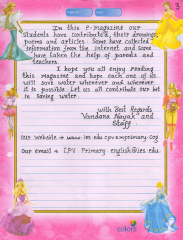 3
In this e-magazine our
students have contributed, their drawings,
poems and articles. Some have collected
information from the internet and some
have taken the help of parents and
teachers.
I hope you all enjoy reading
this magazine and hope each one of us
will save water whenever and wherever
it is possible. Let us all contribute our bit
in saving water.
With Best Regards
Vandana Nayak and
Staff.
Our website → ies.edu.cpvmprimary.org
Our email → CPV Primary.english@ies.edu
colors